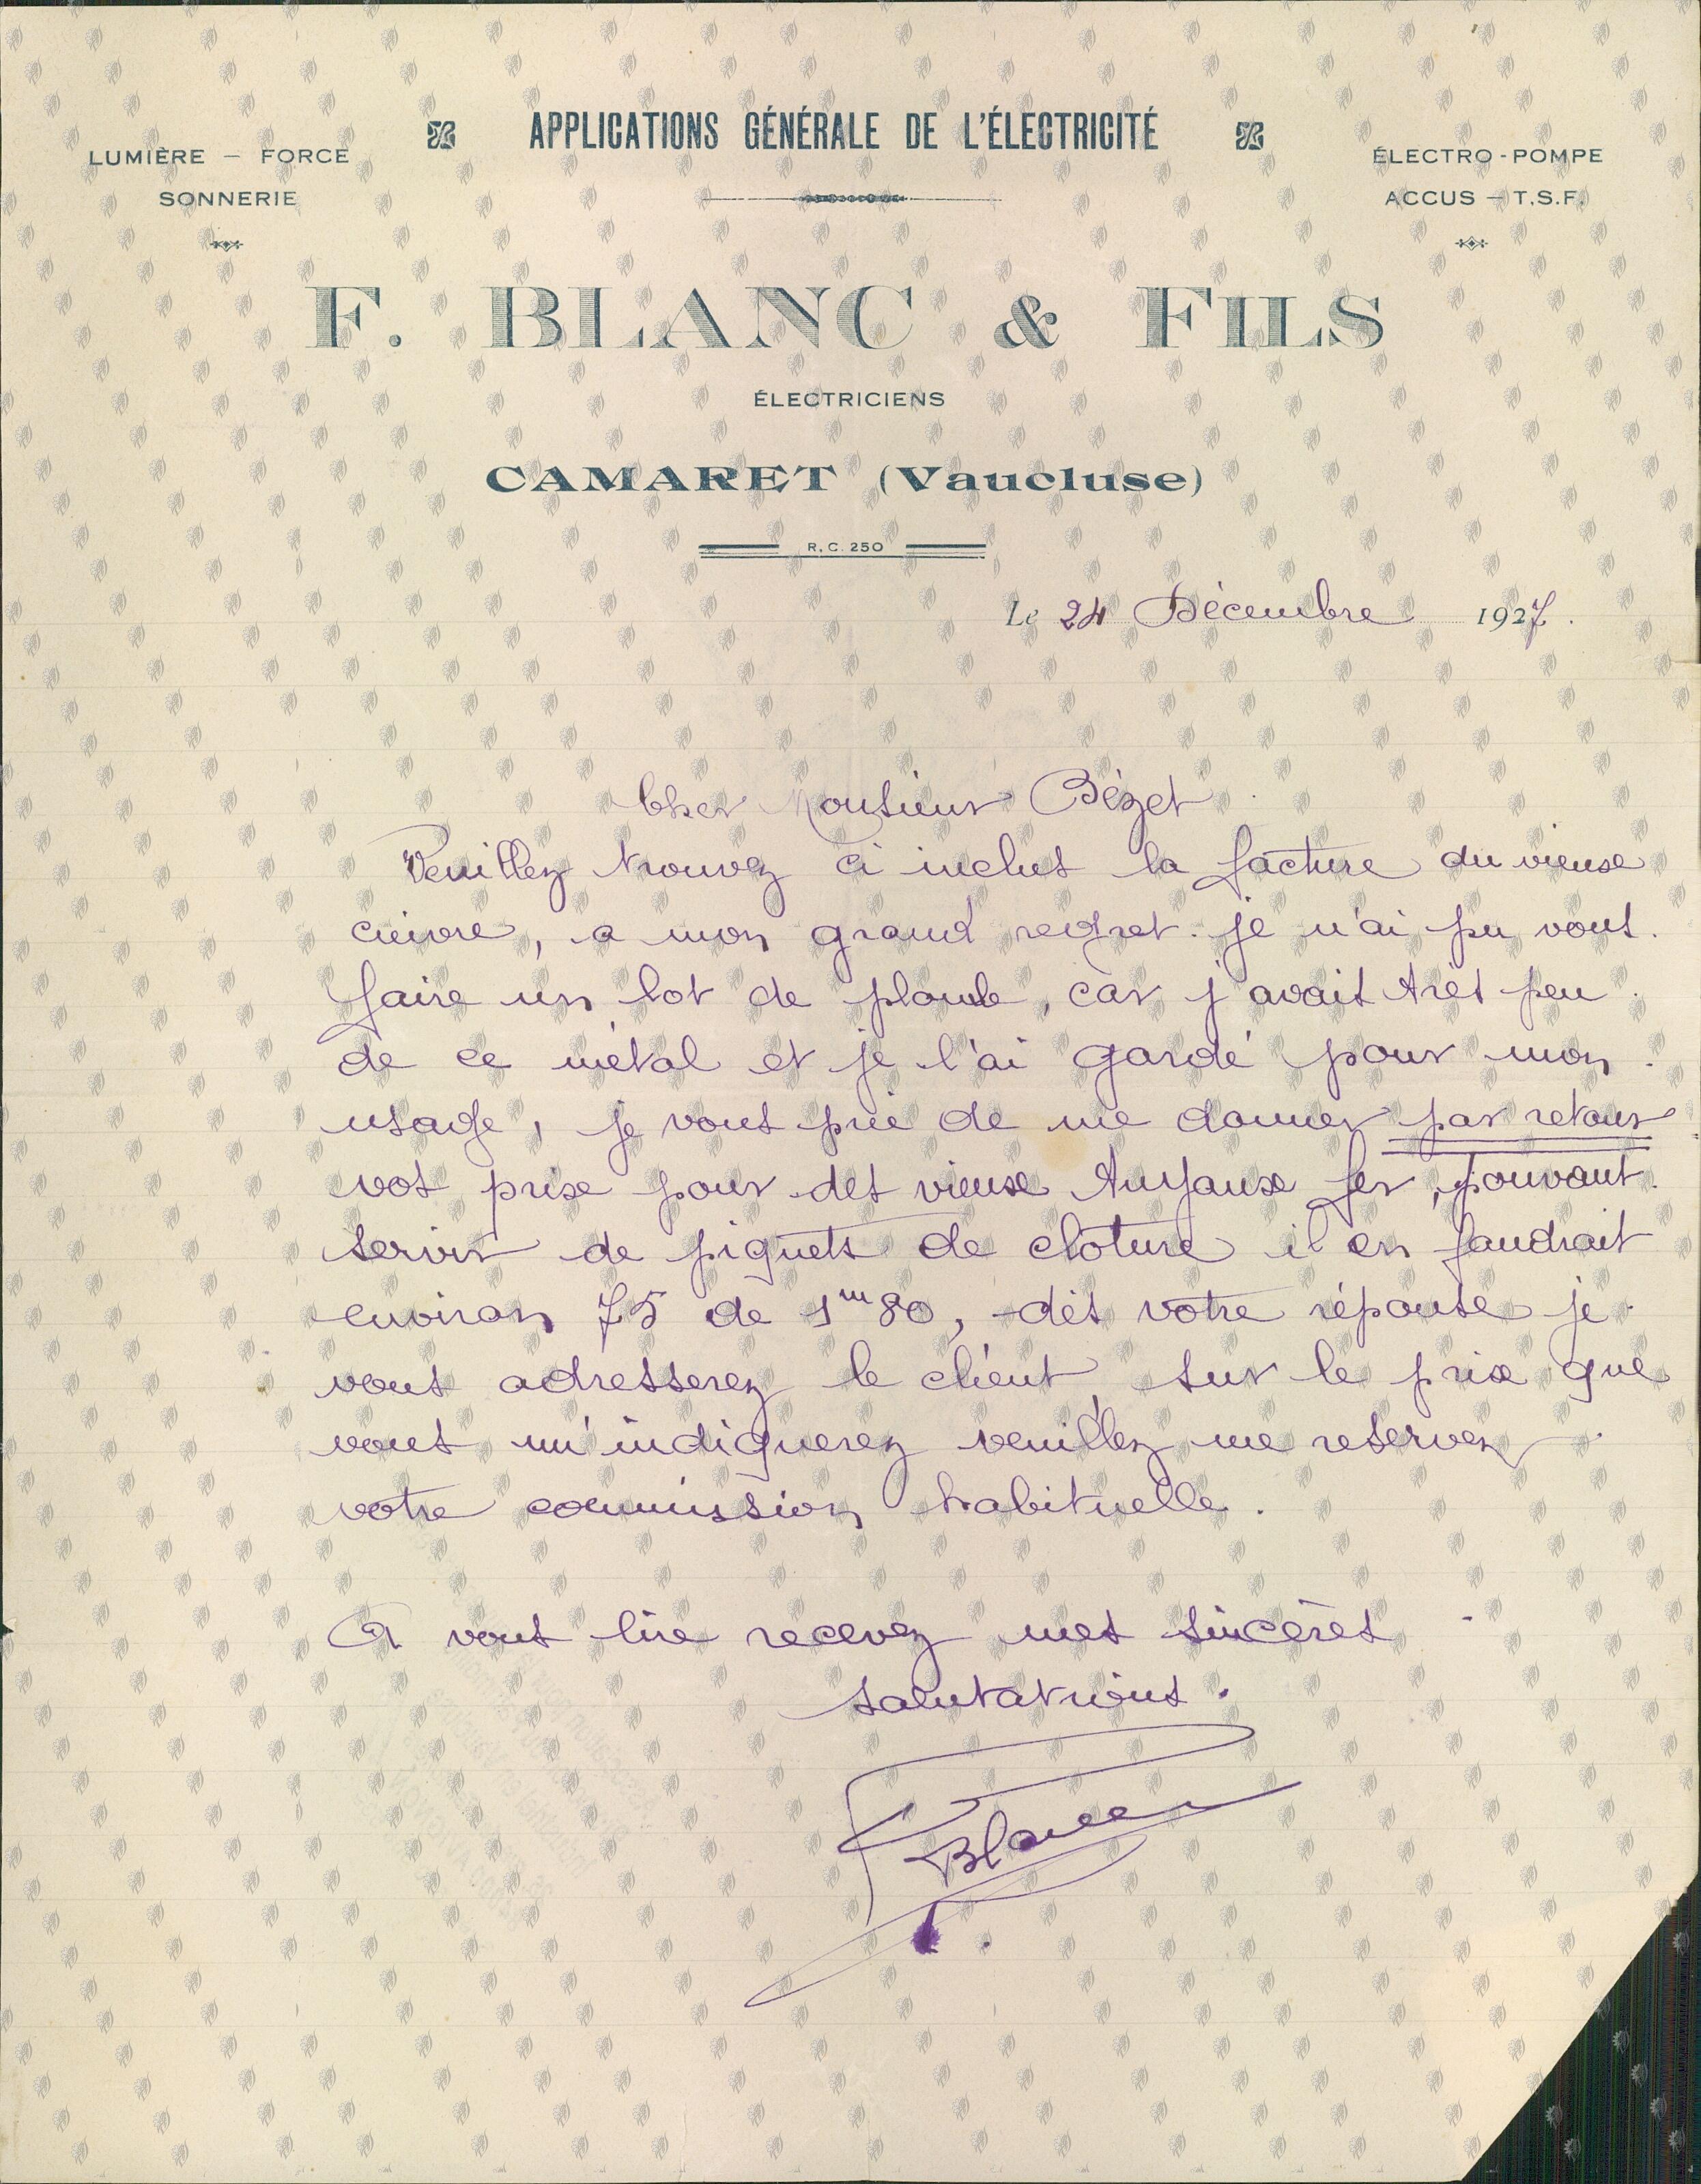 APPLICATIONS GÉNÉRALE DE L'ÉLECTRICITÉ
LUMIÈRE — FORCE
SONNERIE
ÉLECTRO-POMPE
ACCUS — T.S.F.
F. BLANC & FILS
ÉLECTRICIENS
CAMARET (Vaucluse)
R. C. 250
Le 24 Décembre 1927.
Cher Monsieur Bézet
Veuillez trouvez ci inclus la facture du vieux
cuivre, a mon grand regret je n'ai pu vous
faire un lot de plomb, car j'avait très peu
de ce métal et je l'ai gardé pour mon
usage, je vous prie de me donner par retour
vos prix pour des vieux tuyaux fer, pouvant
servir de piquets de cloture il en faudrait
environ 75 de 1m80, dès votre réponse je
vous adresserez le client, sur le prix que
vous m'indiquerez veuillez me reservez
votre commission habituelle.
A vous lire recevez mes sincères
salutations.
Blanc